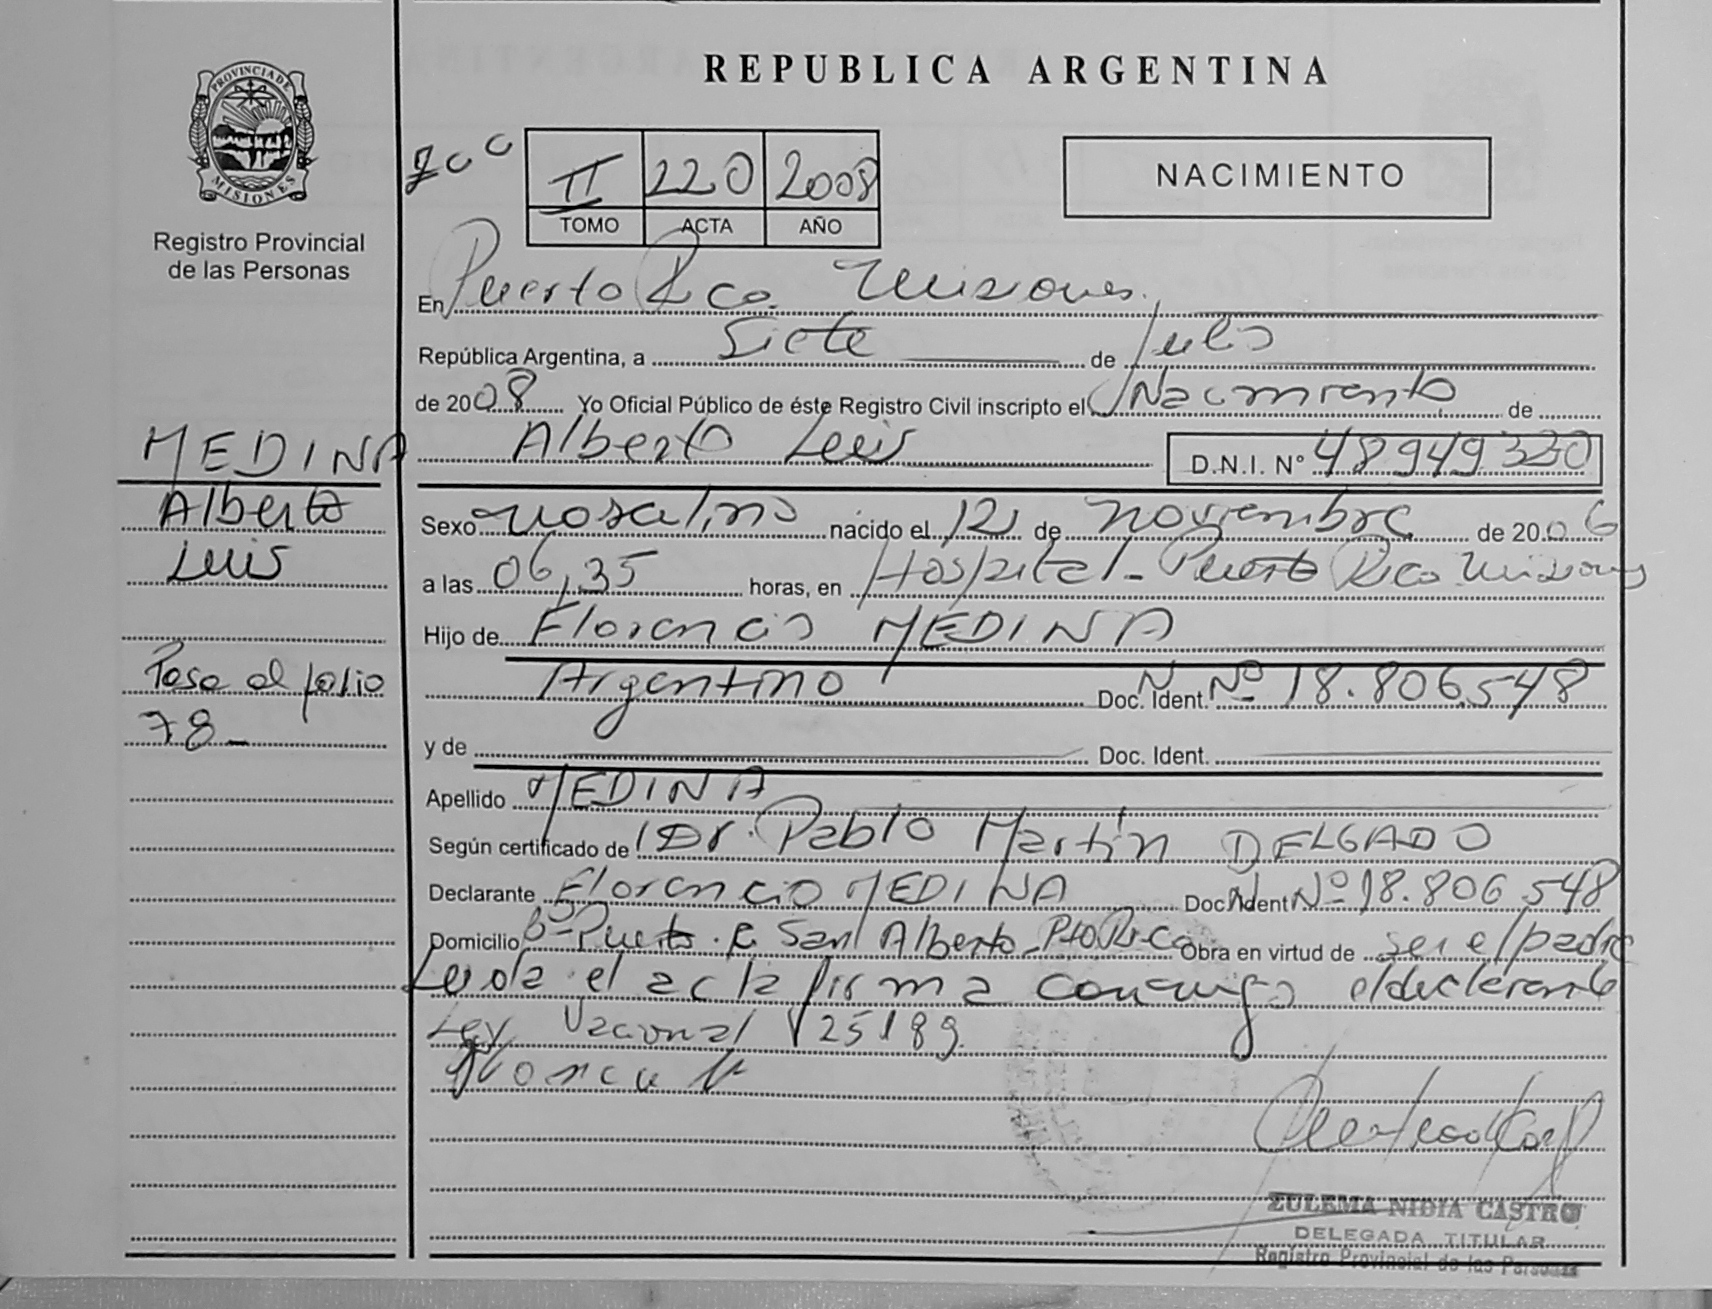 REPUBLICA ARGENTINA
PROVINCIA DE MISIONES
Registro Provincial
de las Personas
II 220 2008
TOMO ACTA AÑO
NACIMIENTO
En Puerto Rico Misiones
República Argentina, a Siete de Julio
de 2008 Yo Oficial Público de éste Registro Civil inscripto el Nacimiento de
Alberto Luis D.N.I. Nº 48949330
MEDINA
Alberto
Luis
Pasa al folio
78
Sexo masculino nacido el 12 de noviembre de 2006
a las 06,35 horas, en Hospital - Puerto Rico Misiones
Hijo de Florencio MEDINA
Argentino Doc. Ident. Nº 18.806.548
y de Doc. Ident.
Apellido MEDINA
Según certificado de Dr. Pablo Martín DELGADO
Declarante Florencio MEDINA Doc. Ident Nº 18.806.548
Domicilio Bº Puerto R. San Alberto Pto Rico Obra en virtud de ser el padre
Leida el acta firma conmigo el declarante
Ley Nacional 25189
ZULEMA NIDIA CASTRO
DELEGADA TITULAR
Registro Provincial de las Personas